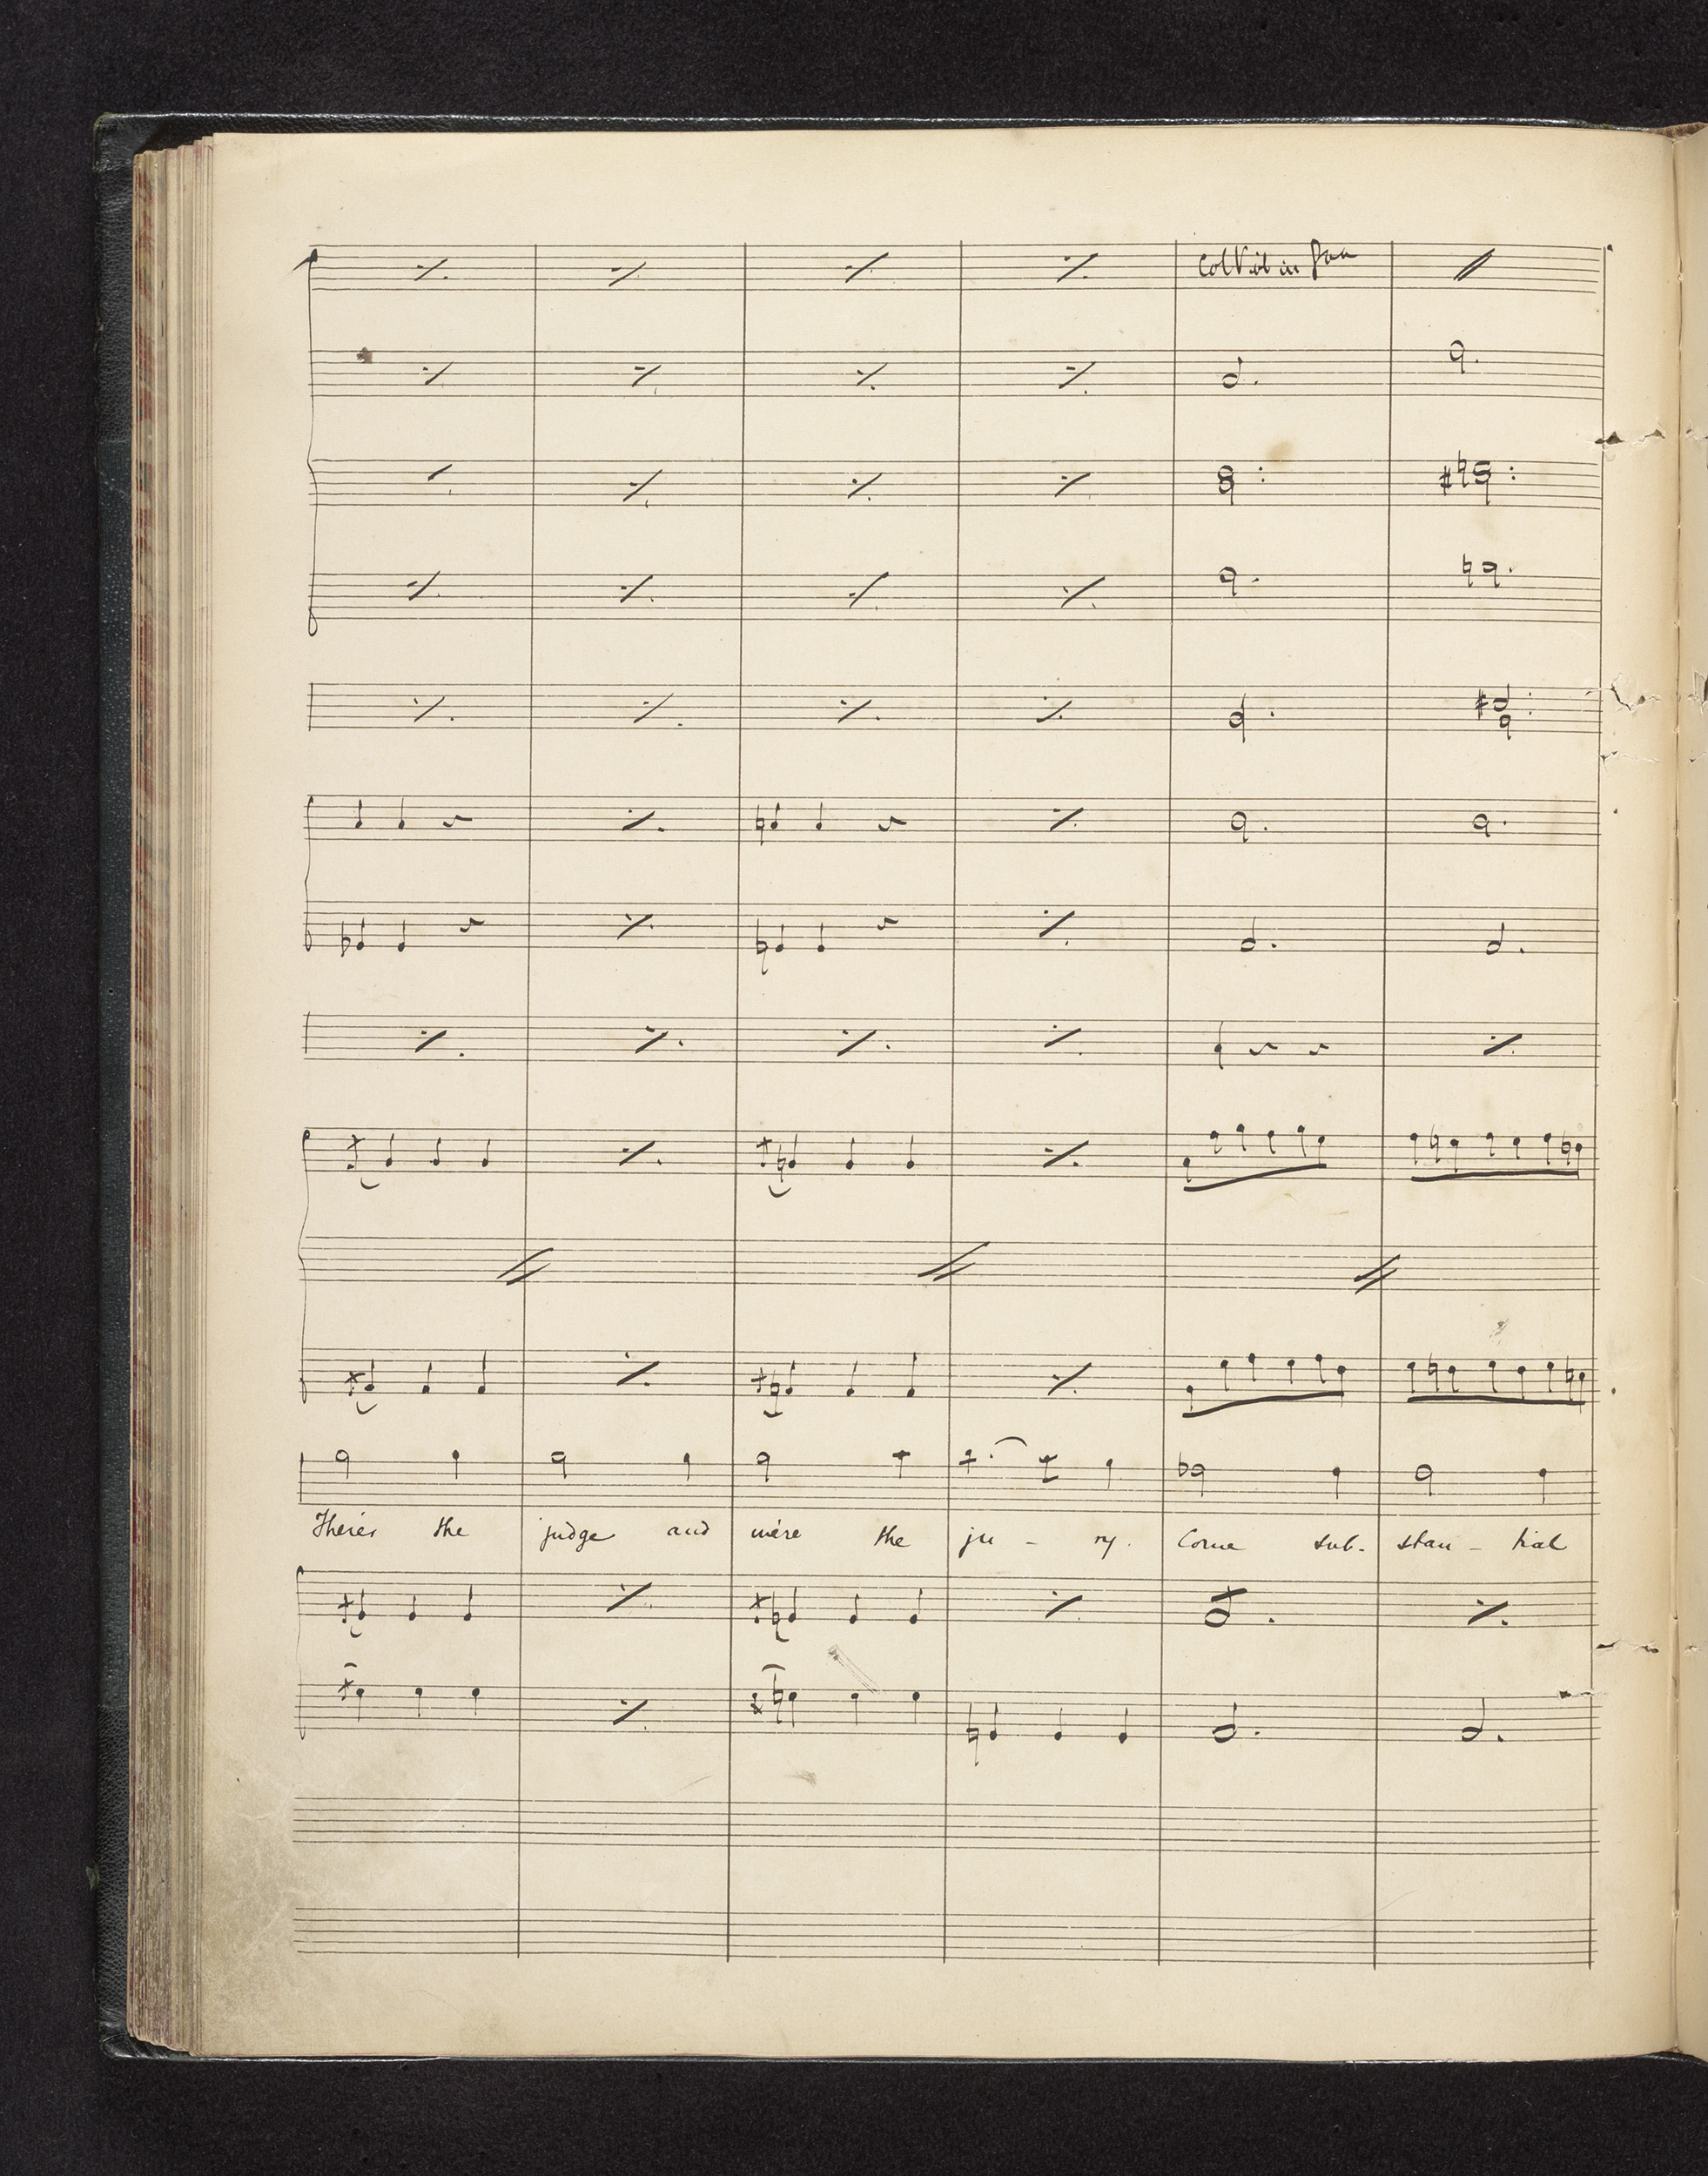 Col Viol in 8va
There's the judge and we're the ju - ry. Come sub- stan - tial